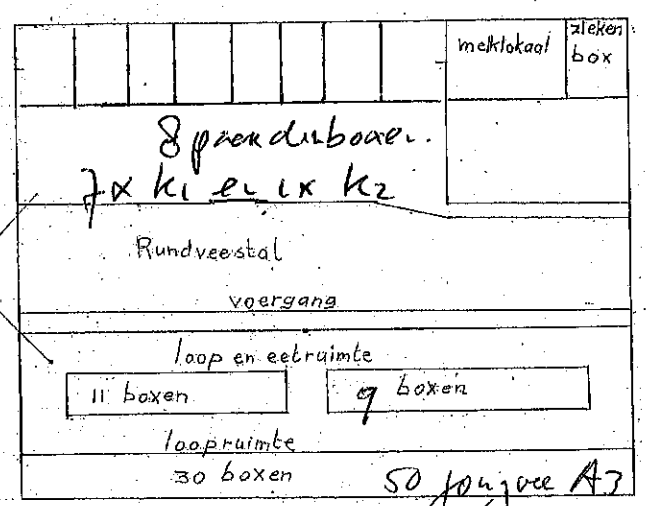 melklokaal
zieken
box
8 paardenboxen.
7x k1 en 1x k2
Rundveestal
voergang
loop en eetruimte
11 boxen
9 boxen
loopruimte
30 boxen
50 jongvee A3